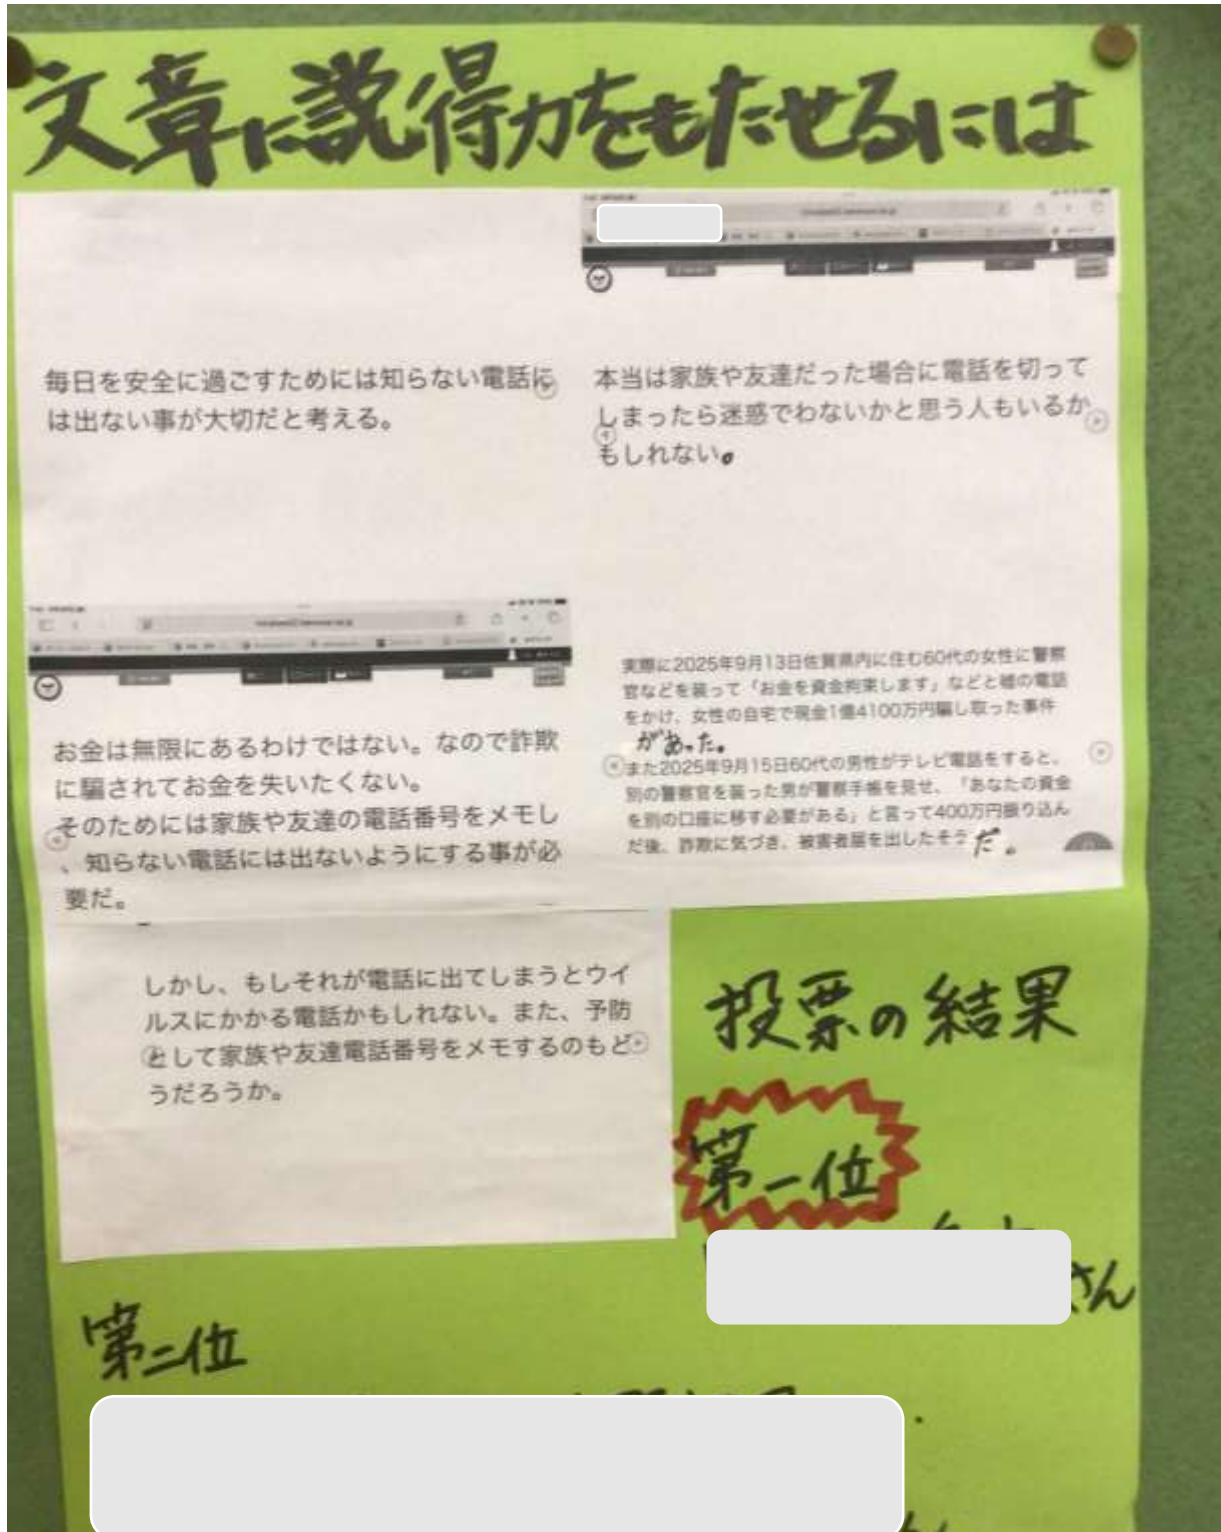 文章に説得力をもたせるには
毎日を安全に過ごすためには知らない電話に
は出ない事が大切だと考える。
本当は家族や友達だった場合に電話を切って
しまったら迷惑でわないかと思う人もいるか
もしれない。
お金は無限にあるわけではない。なので詐欺
に騙されてお金を失いたくない。
そのためには家族や友達の電話番号をメモし
、知らない電話には出ないようにする事が必
要だ。
実際に2025年9月13日佐賀県内に住む60代の女性に警察
官などを装って「お金を資金拘束します」などと嘘の電話
をかけ、女性の自宅で現金1億4100万円騙し取った事件
があった。
また2025年9月15日60代の男性がテレビ電話をすると、
別の警察官を装った男が警察手帳を見せ、「あなたの資金
を別の口座に移す必要がある」と言って400万円振り込ん
だ後、詐欺に気づき、被害者届を出したそうだ。
しかし、もしそれが電話に出てしまうとウイ
ルスにかかる電話かもしれない。また、予防
として家族や友達電話番号をメモするのもど
うだろうか。
投票の結果
第一位
さん
第二位